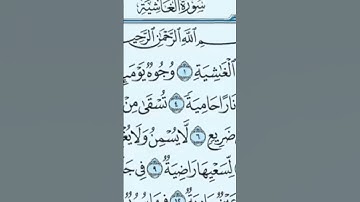 سُورَةُ الْغَاشِيَةِ
سْمِ اللَّهِ الرَّحْمَٰنِ الرَّحِي
الْغَاشِيَةِ ١ وُجُوهٌ يَوْمَئِ
نَارًا حَامِيَةً ٤ تُسْقَىٰ مِنْ
ضَرِيعٍ ٦ لَّا يُسْمِنُ وَلَا يُغْ
لِّسَعْيِهَا رَاضِيَةٌ ٩ فِي جَ